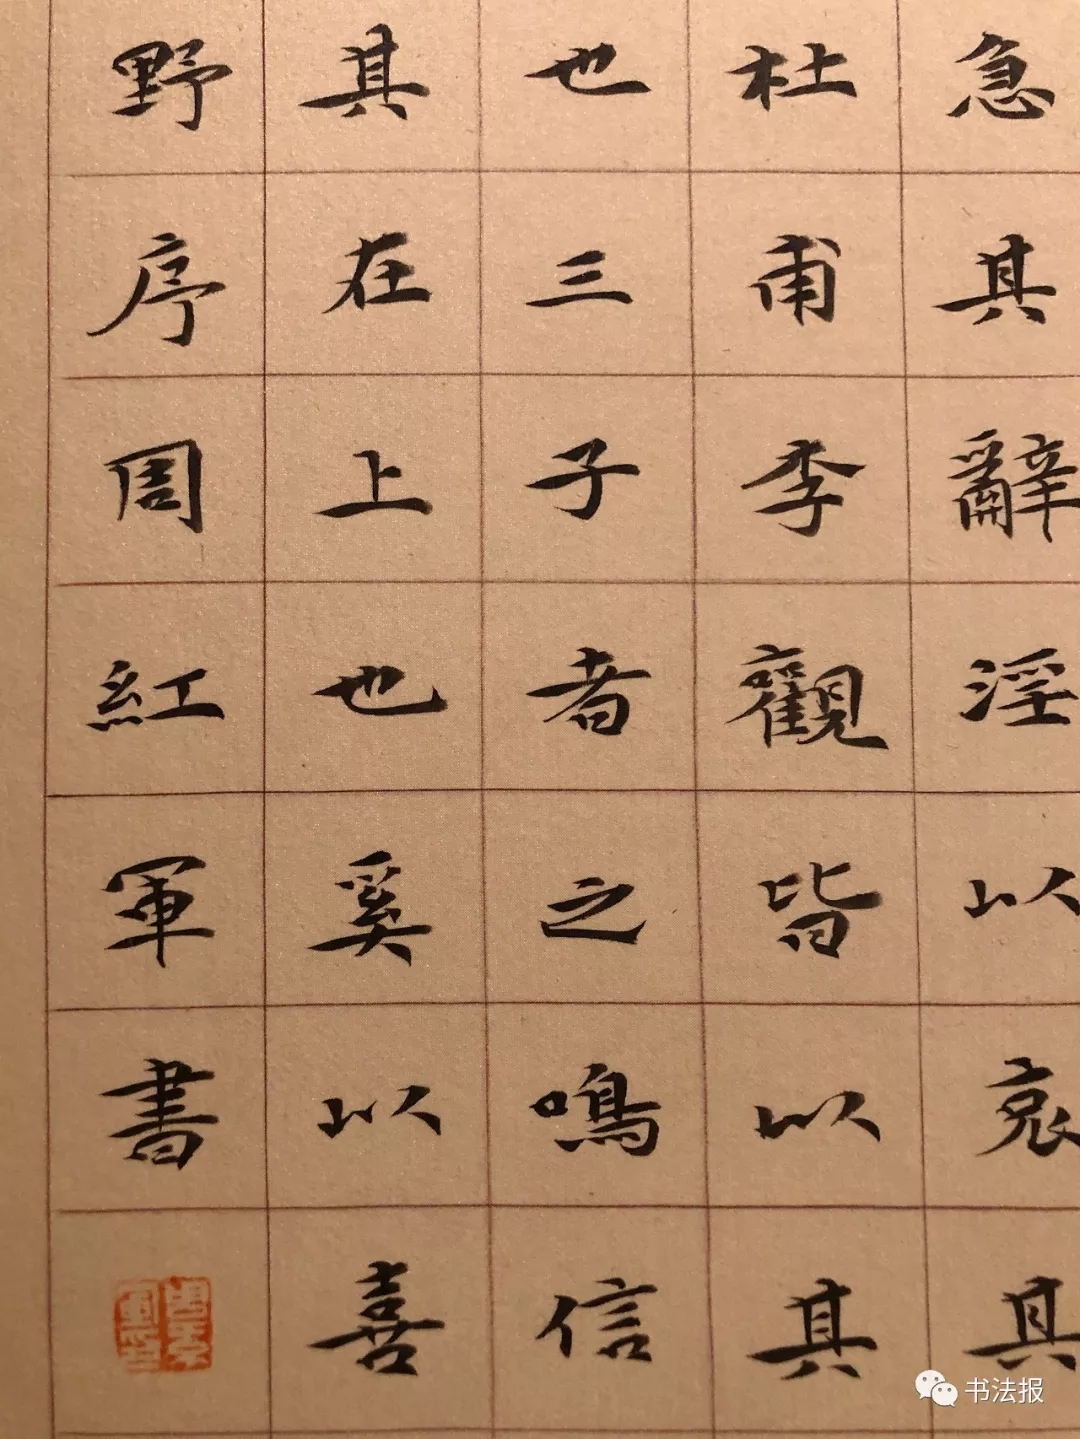 急其辭淫以哀其
杜甫李觀皆以其
也三子者之鳴信
其在上也奚以喜
野序周紅軍書
书法报